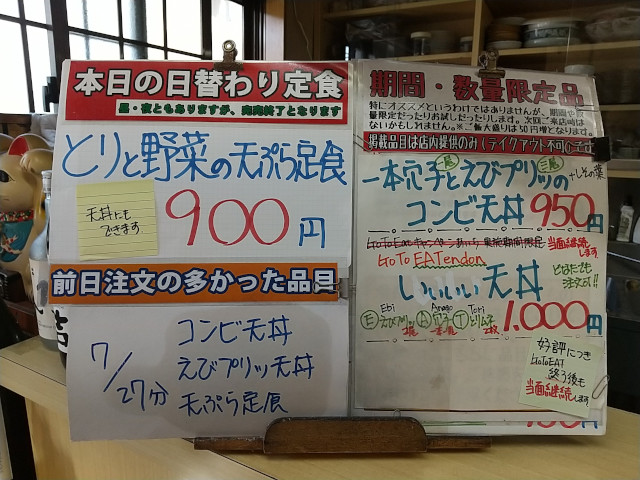 本日の日替わり定食
昼・夜ともありますが、完売終了となります
とりと野菜の天ぷら定食
天丼にも
できます
900円
前日注文の多かった品目
7/27分
コンビ天丼
えびプリッ天丼
天ぷら定食
期間・数量限定品
特にオススメというわけではありませんが、期間や数
量限定だったりお試しだったりします。次回ご来店時は
ないかもしれません。※ご飯大盛りは50円増となります。
掲載品目は店内提供のみ(テイクアウト不可)
一本穴子と二尾えびプリッの三尾
+しその葉
コンビ天丼 950円
GoToEatキャンペーンあいち 実施期間限定
当面継続します
GoTo EATendon
いいいい天丼
どなたでも
注文可!!
Ebi Anago Tori
Ⓔえびプリッ Ⓐ穴子 Ⓣとりムネ
1.000円
好評につき
GoToEAT
終了後も
当面継続します